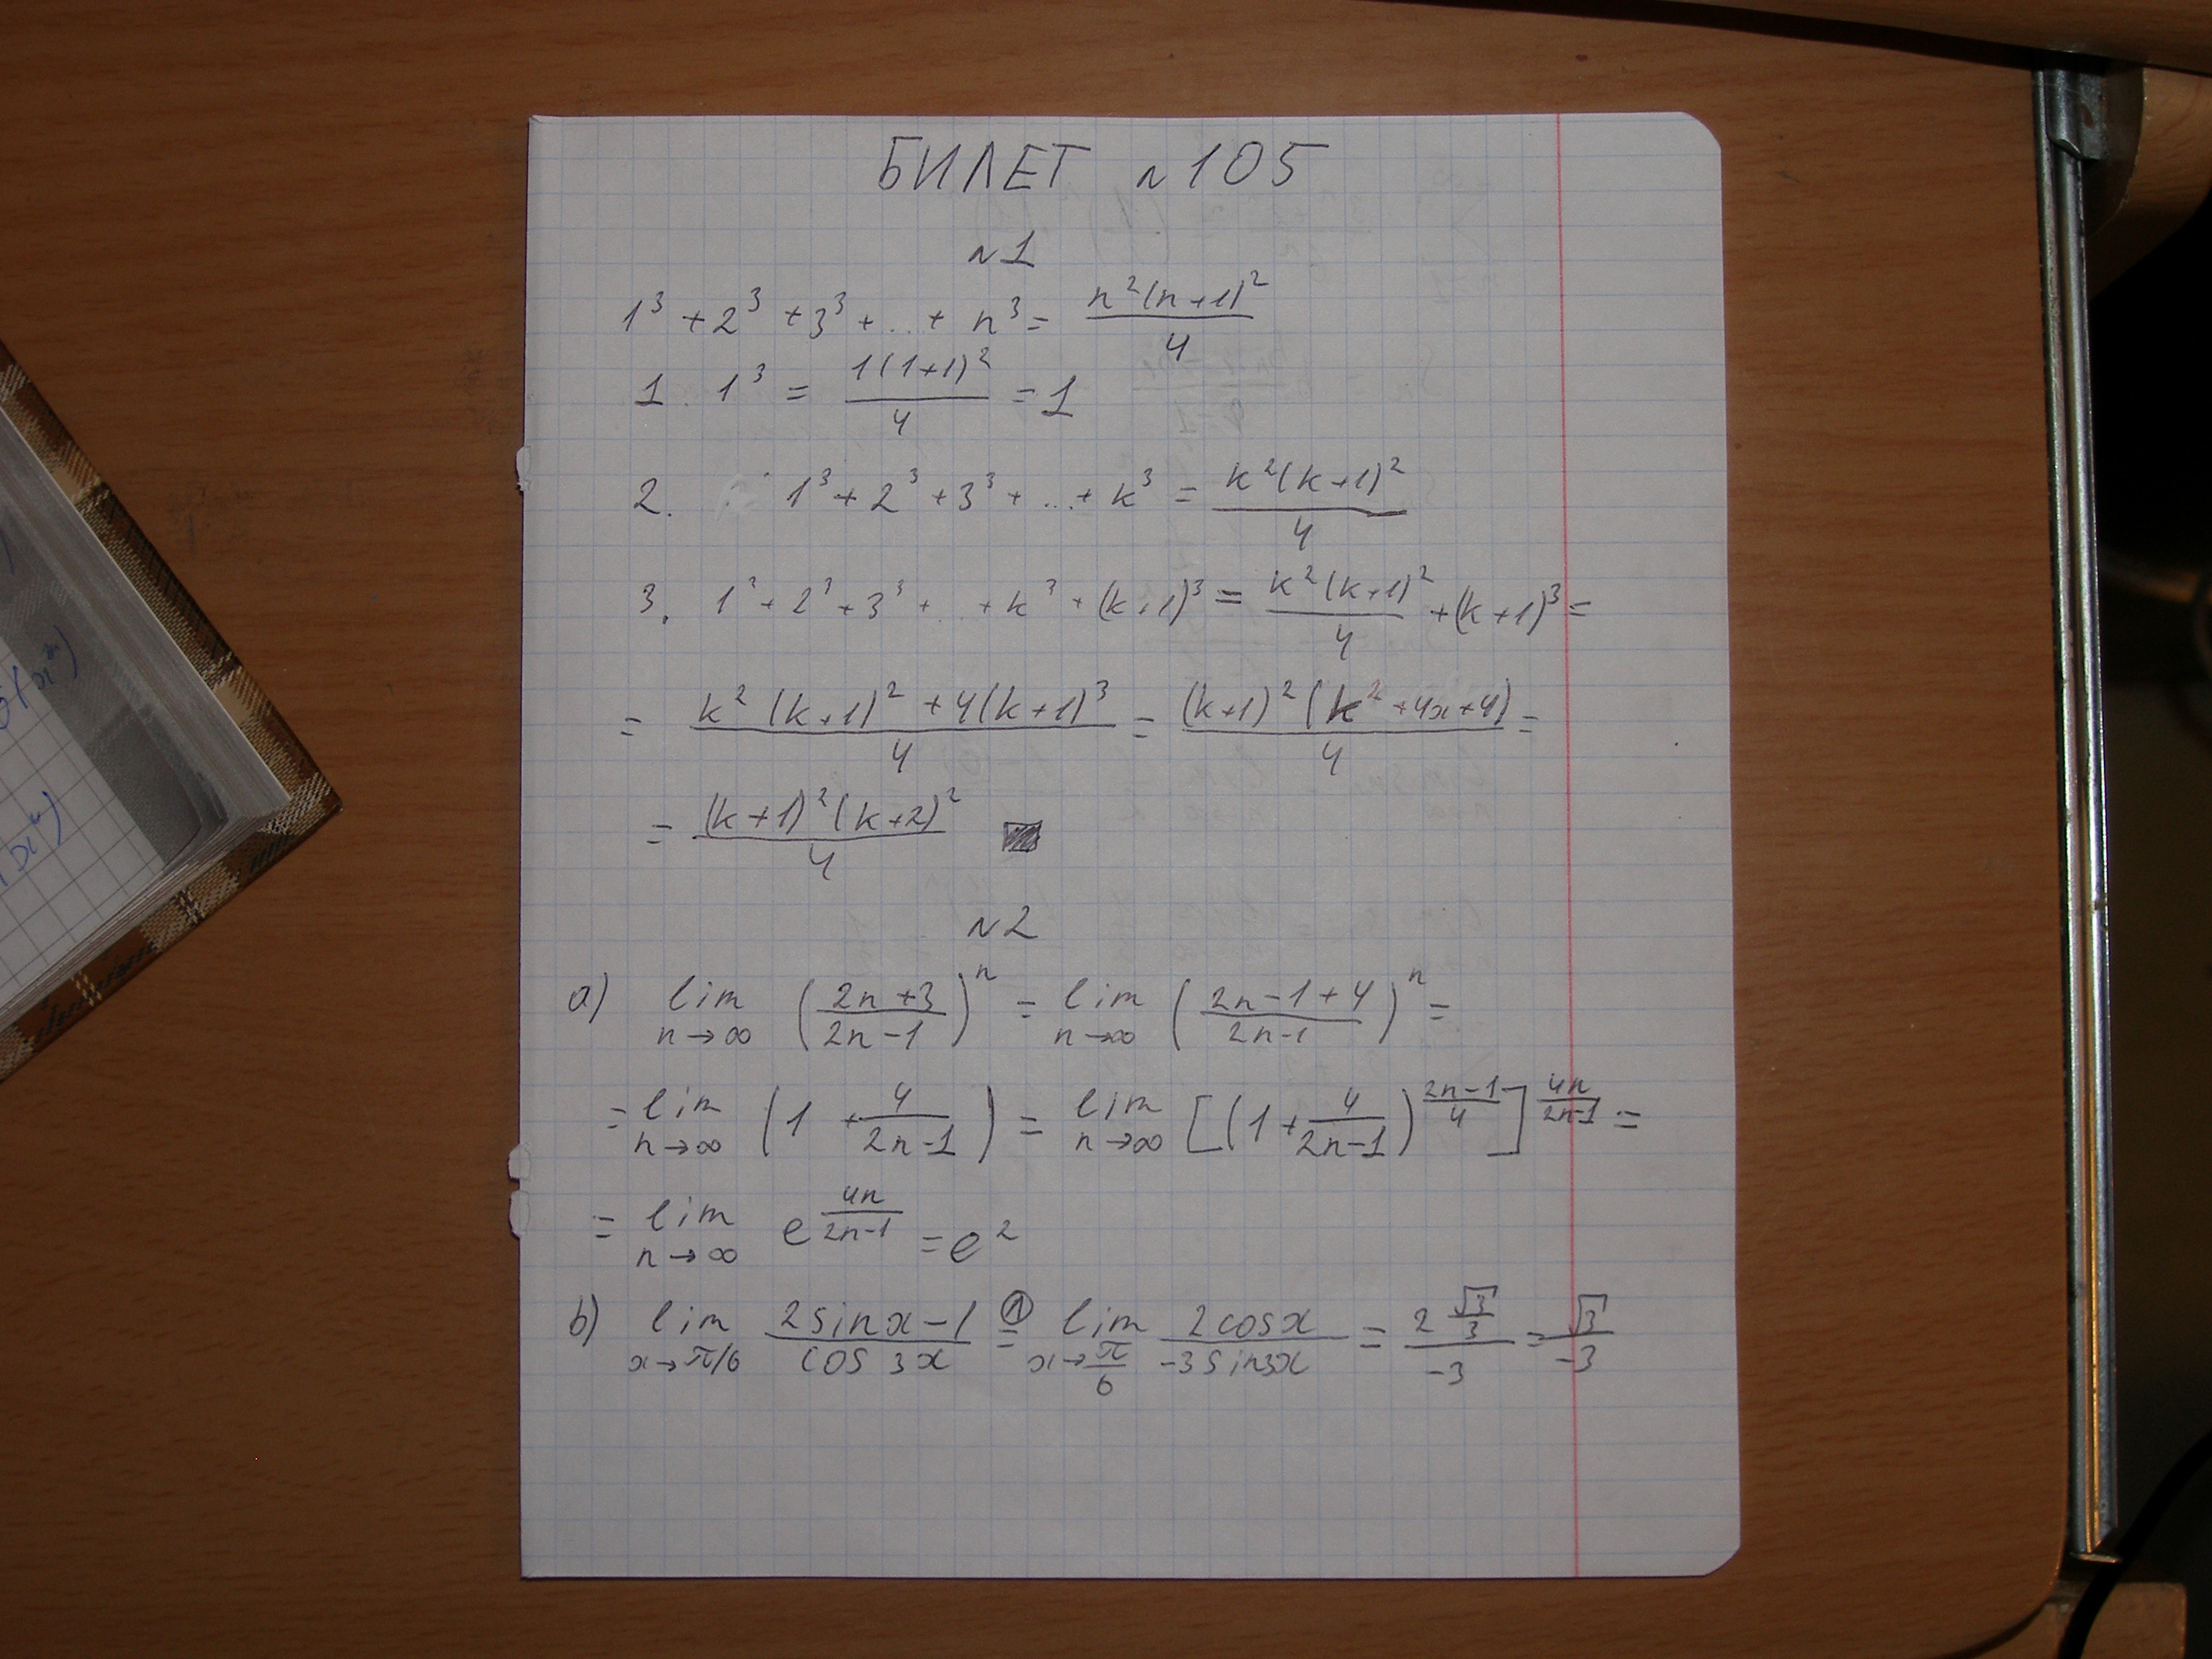 БИЛЕТ №105
№1
1³ + 2³ + 3³ + ... + n³ = n²(n+1)²/4
1. 1³ = 1(1+1)²/4 = 1
2. 1³ + 2³ + 3³ + ... + k³ = k²(k+1)²/4
3. 1³ + 2³ + 3³ + ... + k³ + (k+1)³ = k²(k+1)²/4 + (k+1)³ =
= (k²(k+1)² + 4(k+1)³)/4 = (k+1)²(k² + 4x + 4)/4 =
= (k+1)²(k+2)²/4
№2
a) lim n→∞ ((2n+3)/(2n-1))ⁿ = lim n→∞ ((2n-1+4)/(2n-1))ⁿ =
= lim n→∞ (1 + 4/(2n-1)) = lim n→∞ [(1 + 4/(2n-1))^((2n-1)/4)]^(4n/(2n-1)) =
= lim n→∞ e^(4n/(2n-1)) = e²
b) lim x→π/6 (2sinx-1)/(cos 3x) =① lim x→π/6 (2cosx)/(-3sin3x) = (2 √3/3)/(-3) = √3/(-3)